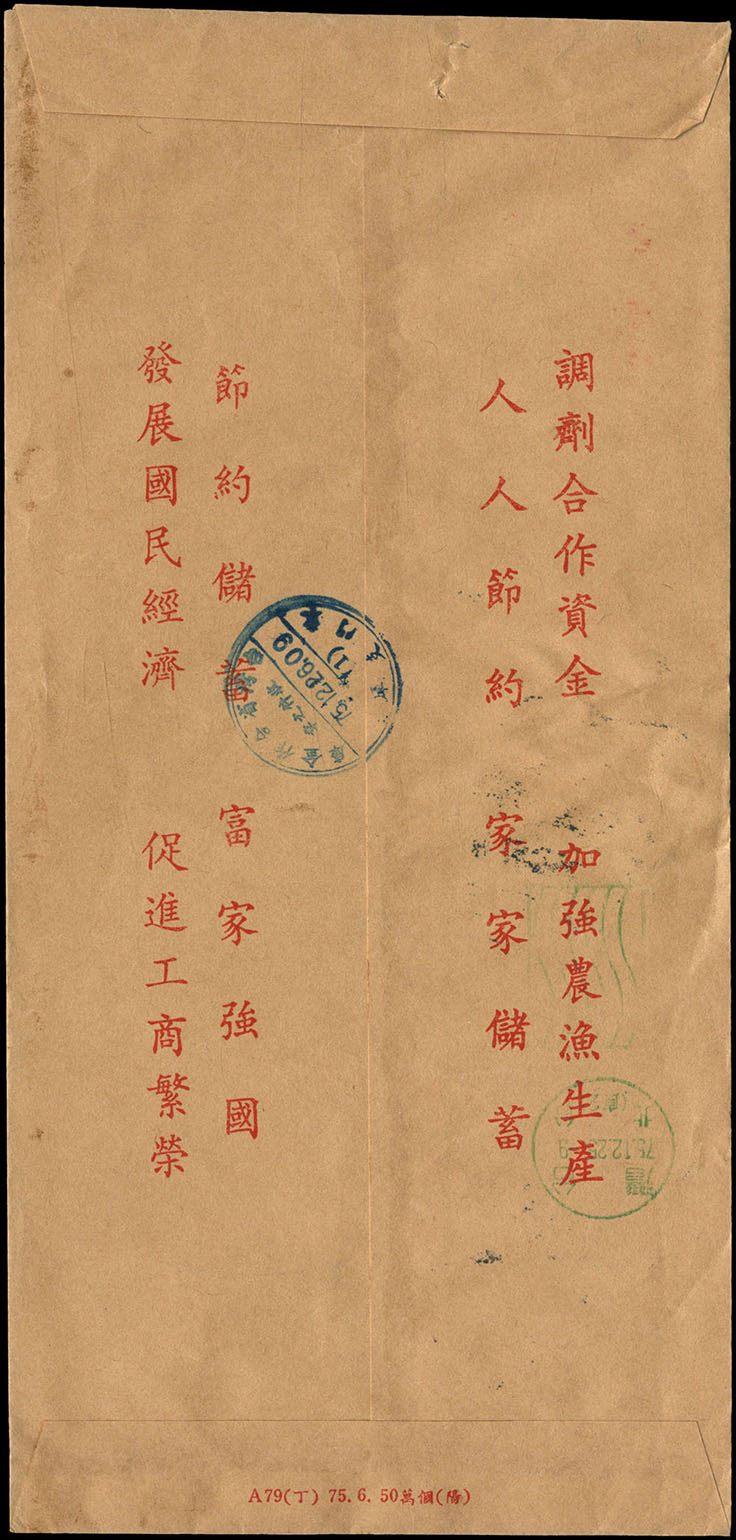 調劑合作資金　加強農漁生產
人人節約　家家儲蓄
節約儲蓄　富家強國
發展國民經濟　促進工商繁榮
75.12.26.09
A79(丁) 75. 6. 50萬個(陽)